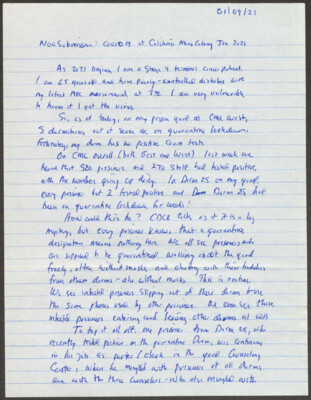 01/09/21
Covid19 at California Mens Colony Jan 2021
As 2021 begins I am a Stage 4 terminal cancer patient.
I am 65 years old and have poorly-controlled diabetes with
my latest A1C measurement at I am very vulnerable
to harm if I get the virus.
So, as of today, in my prison yard at CMC West,
5 dormitories out of seven are on quarantine lockdown.
Fortunately, my dorm has no positive Covid tests.
On CMC overall (both East and West) last week we
heard that 580 prisoners and 270 staff had tested positive,
with the numbers going up daily. In Dorm 25 on my yard
every prisoner but 2 tested positive and Dorm 25 had
been on quarantine lockdown for weeks!
How could this be? CDCR acts as if it is a big
mystery, but every prisoner knows that a quarantine
designation means nothing here. We all see prisoners who
are supposed to be quarantined walking about the yard
freely, often without masks and chatting with their buddies
from other dorms - also without masks. This is routine.
We see infected prisoners slipping out of these dorms to use
the same phones used by other prisoners. We even see these
infected prisoners entering and leaving other dorms at will.
To top it all off, one prisoner from Dorm 25, who
recently tested positive in the quarantine Dorm, was continuing
in his job as porter/clerk in the yard Counseling
Center, where he mingled with prisoners of all dorms
and with the three counselors - who also mingled with